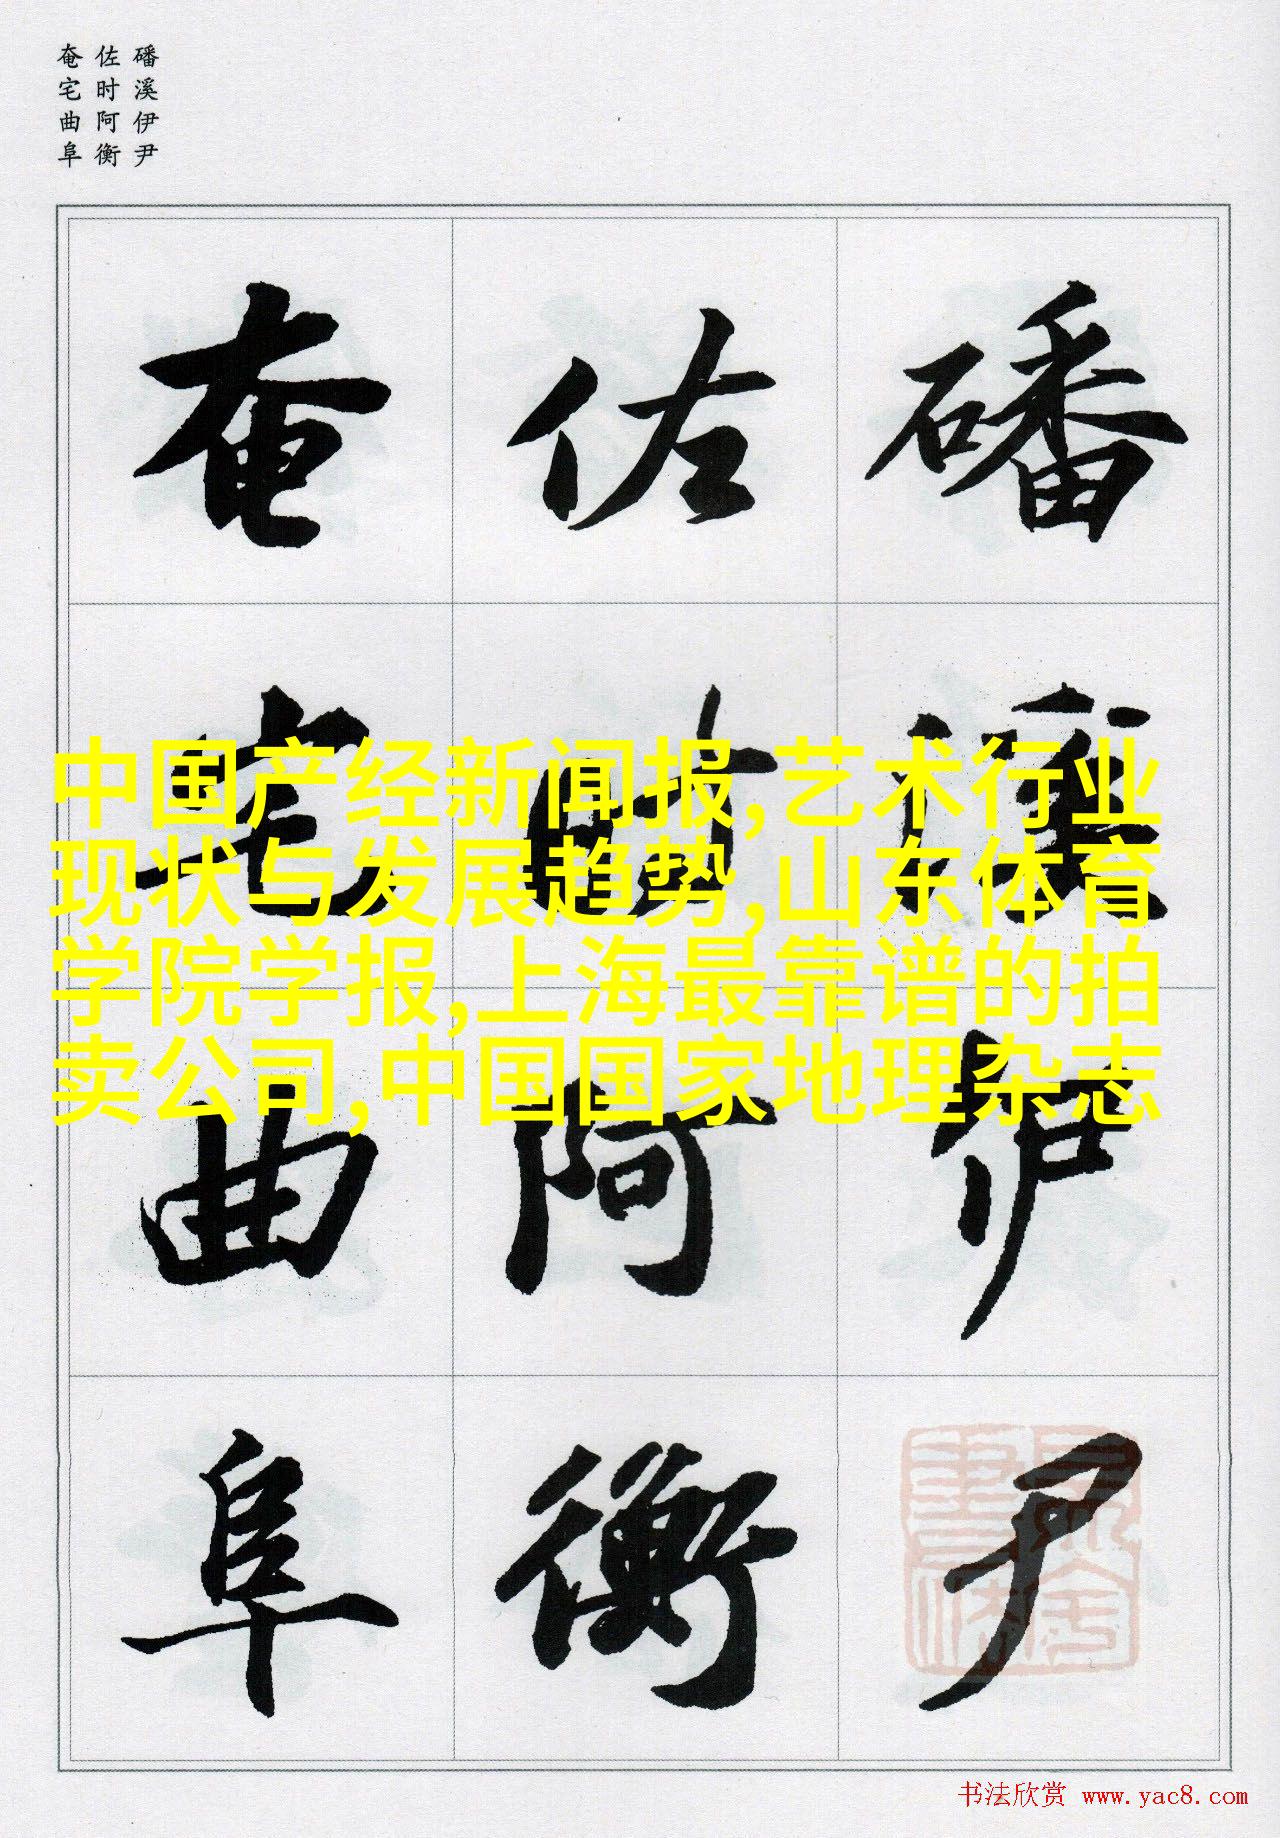 磻溪伊尹
佐时阿衡
奄宅曲阜
磻溪伊尹
佐时阿衡
奄宅曲阜
中国产经新闻报,艺术行业
现状与发展趋势,山东体育
学院学报,上海最靠谱的拍
卖公司,中国国家地理杂志
书法欣赏 www.yac8.com